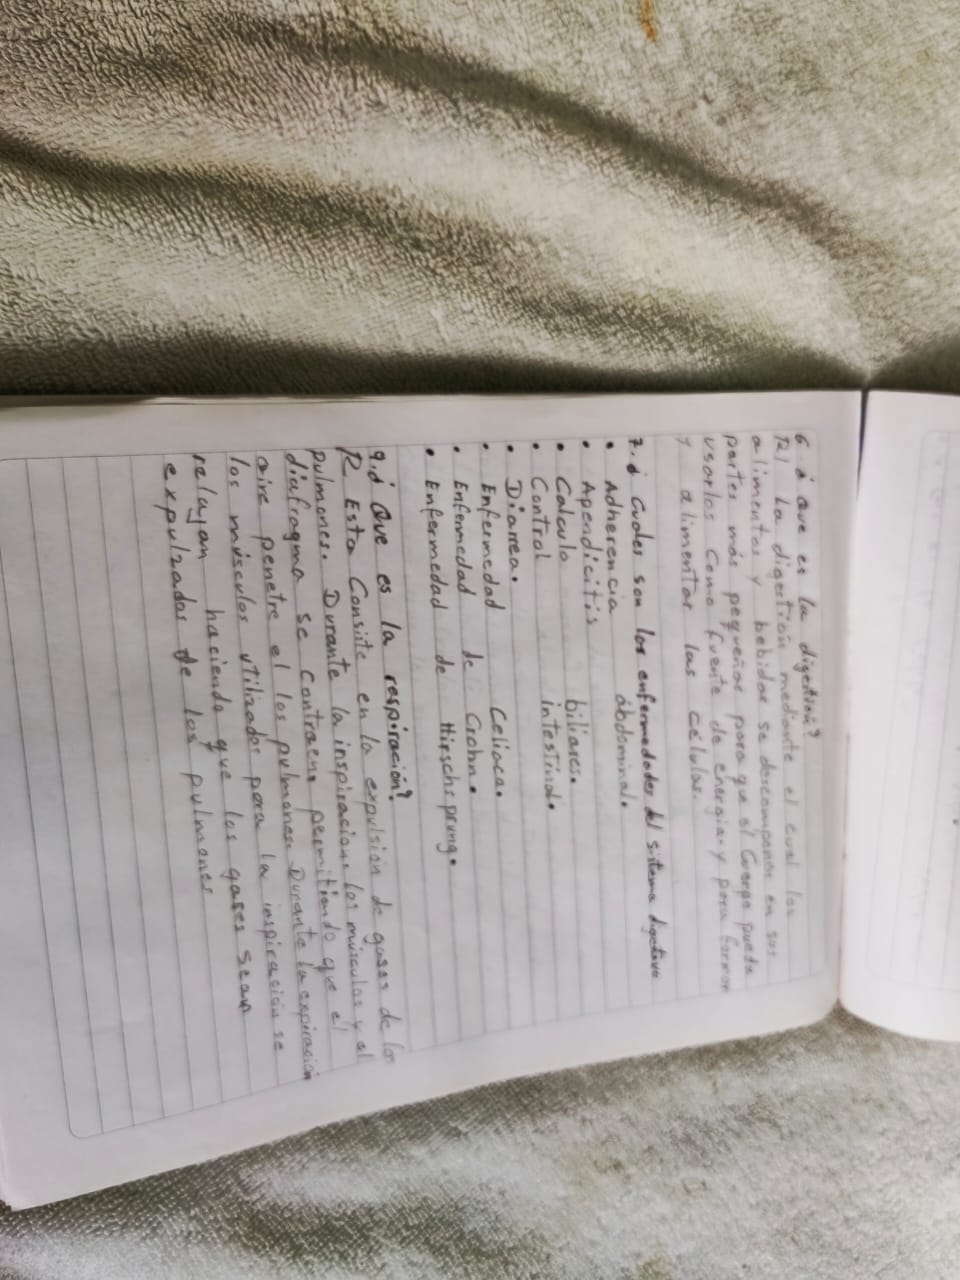 6 ¿ Que es la digestión?
R/ La digestión mediante el cual los
alimentos y bebidas se descomponen en sus
partes más pequeñas para que el Cuerpo pueda
usarlos como fuente de energía y para formar
y alimentar las células.
7. ¿ Cuales son las enfermedades del sistema digestivo
• Adherencia abdominal.
• Apendicitis
• Calculo biliares.
• Control intestinal.
• Diarrea.
• Enfermedad Celiaca.
• Enfermedad de Crohn.
• Enfermedad de Hirschsprung.
9.¿ Que es la respiración?
R Esta Consiste en la expulsión de gases de los
pulmones. Durante la inspiracion, los músculos y el
diafragma se contraen, permitiendo que el
aire penetre el los pulmones. Durante la expiración
los músculos utilizados para la inspiración se
relajan haciendo que los gases sean
expulzados de los pulmones